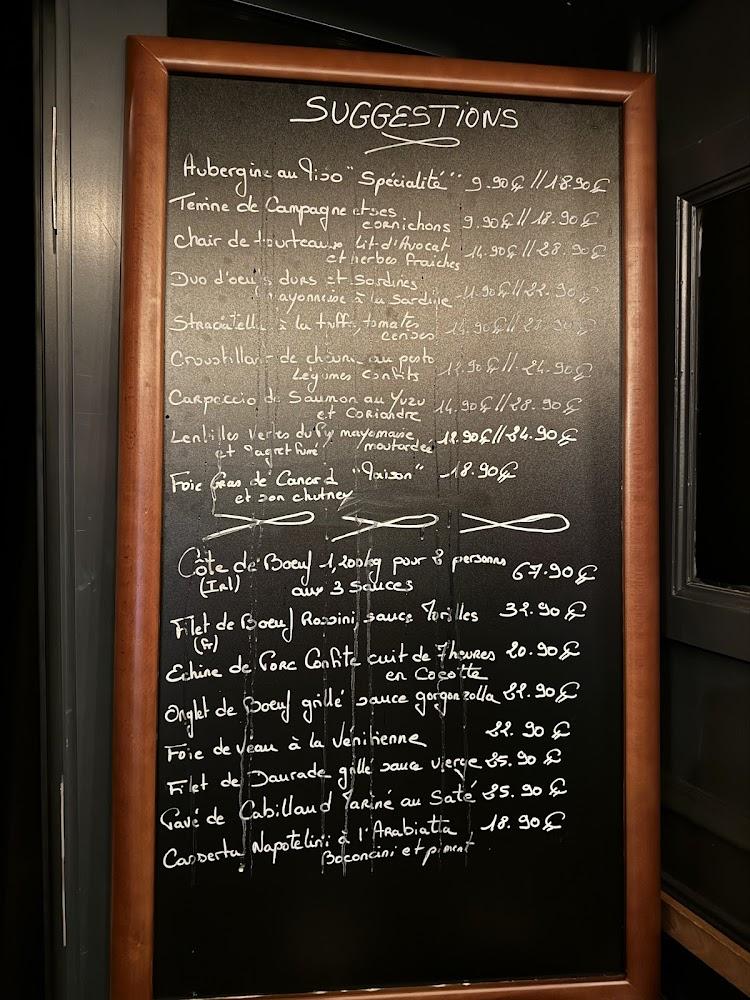 SUGGESTIONS
Aubergine au Miso "Spécialité" 9.90€ // 18.90€
Terrine de Campagne et ses
cornichons 9.90€ // 18.90€
Chair de tourteaux, Lit d'Avocat
et herbes fraîches 14.90€ // 28.90€
Duo d'oeufs durs et Sardines
mayonnaise à la sardine 11.90€ // 22.90€
Straciatella à la truffe, tomates
cerises 14.90€ //
Croustillant de chèvre au pesto
Légumes Confits 12.90€ // 24.90€
Carpaccio de Saumon au Yuzu
et Coriandre 14.90€ // 28.90€
Lentilles Vertes du Puy mayonnaise
et Magret fumé moutardée 12.90€ // 24.90€
Foie Gras de Canard "Maison" 18.90€
et son chutney
Côte de Boeuf 1,200kg pour 2 personnes
(Irl) aux 3 Sauces 67.90€
Filet de Boeuf Rossini, sauce Morilles 32.90€
(fr)
Echine de Porc Confite cuit de 7 heures 20.90€
en Cocotte
Onglet de Boeuf grillé sauce gorgonzolla 22.90€
Foie de veau à la Vénitienne 22.90€
Filet de Daurade grillé sauce vierge 25.90€
Pavé de Cabillaud Mariné au Saté 25.90€
Casserta Napotelini à l'Arabiatta 18.90€
Boconcini et piment